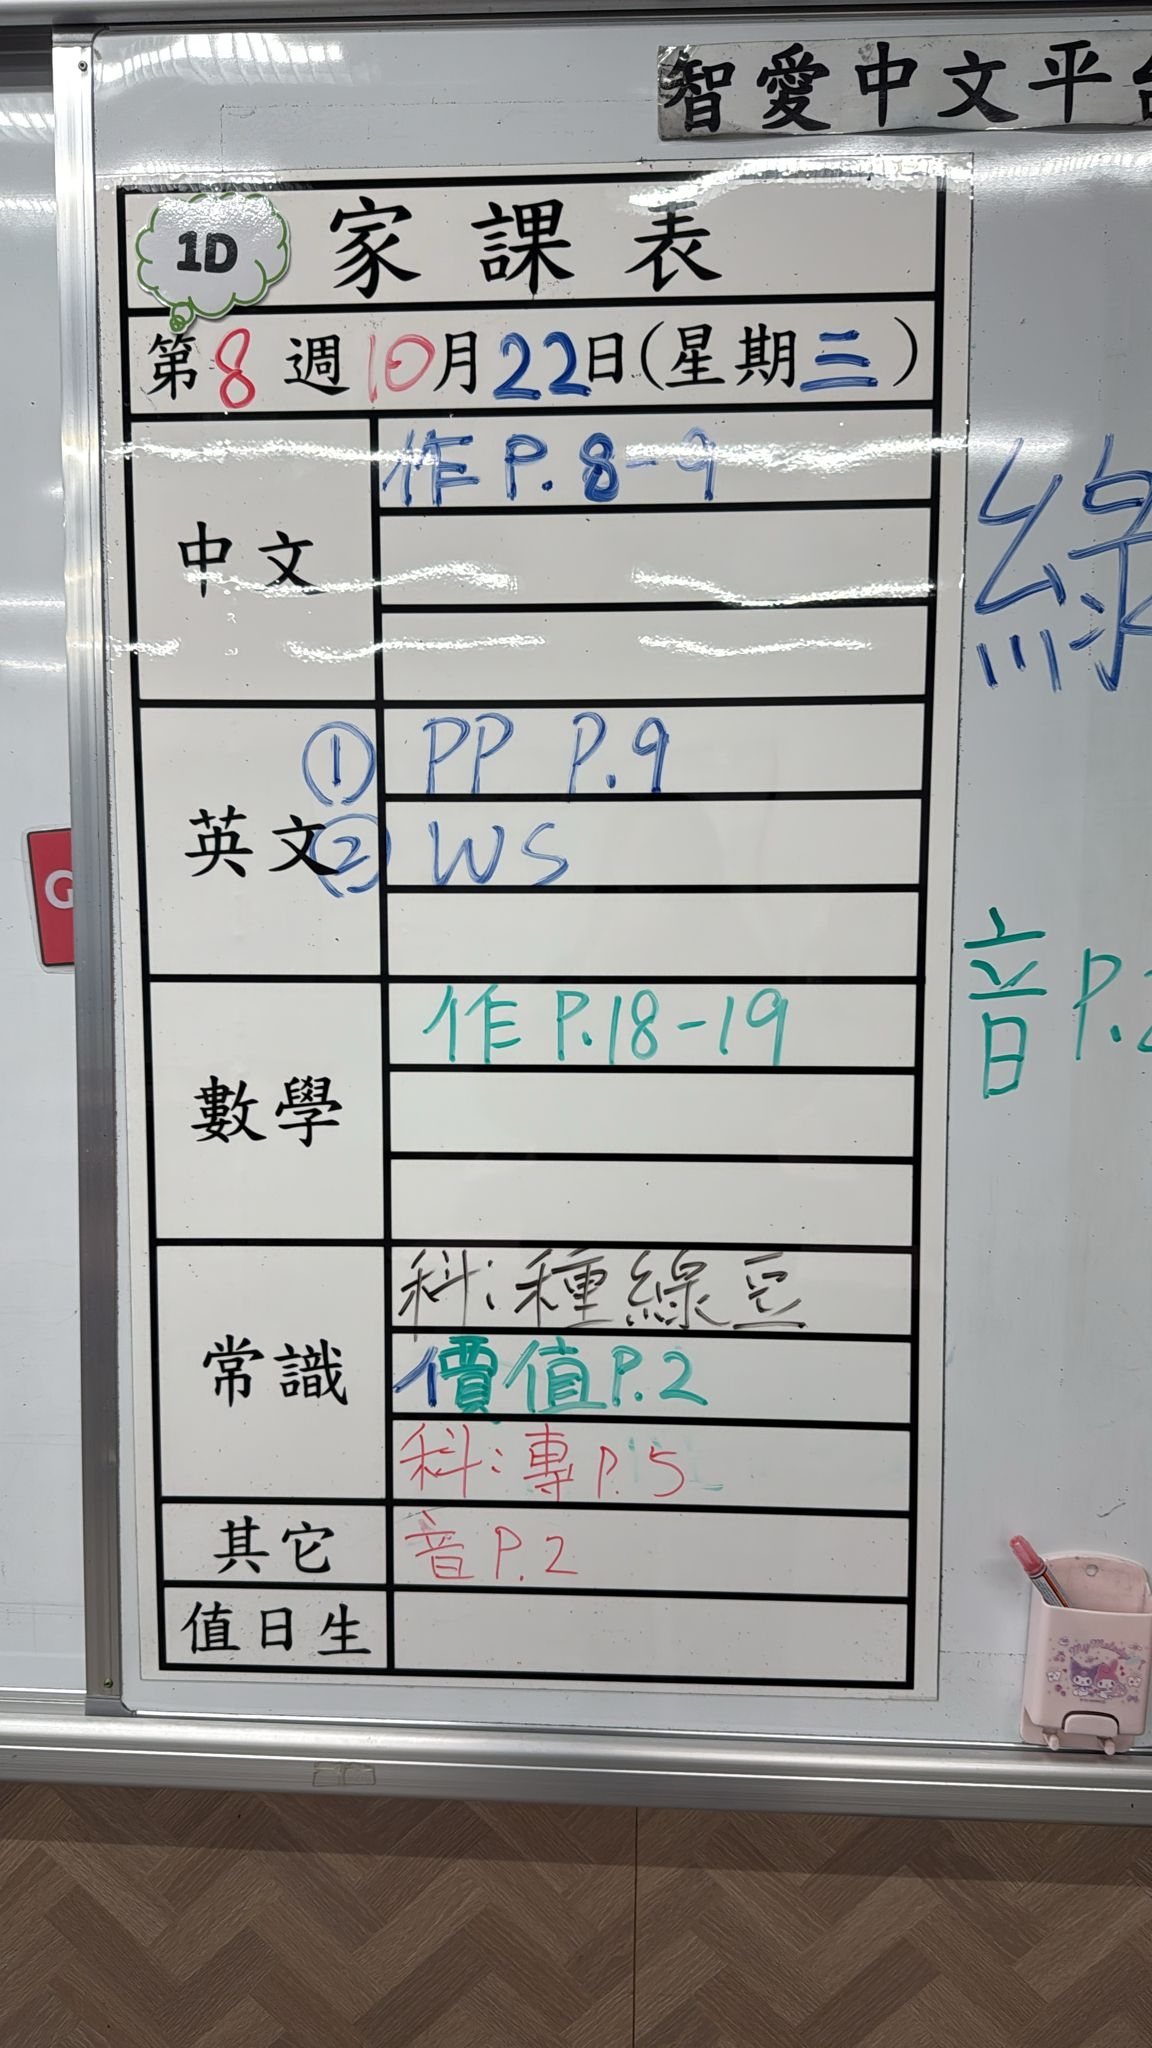 智愛中文平
1D
家課表
第8週10月22日(星期三)
中文
作 P. 8-9
英文
① PP P.9
② WS
數學
作 P.18-19
常識
科:種綠豆
價值P.2
科:專P.5
其它
音P.2
值日生
音P.
G
My Melody